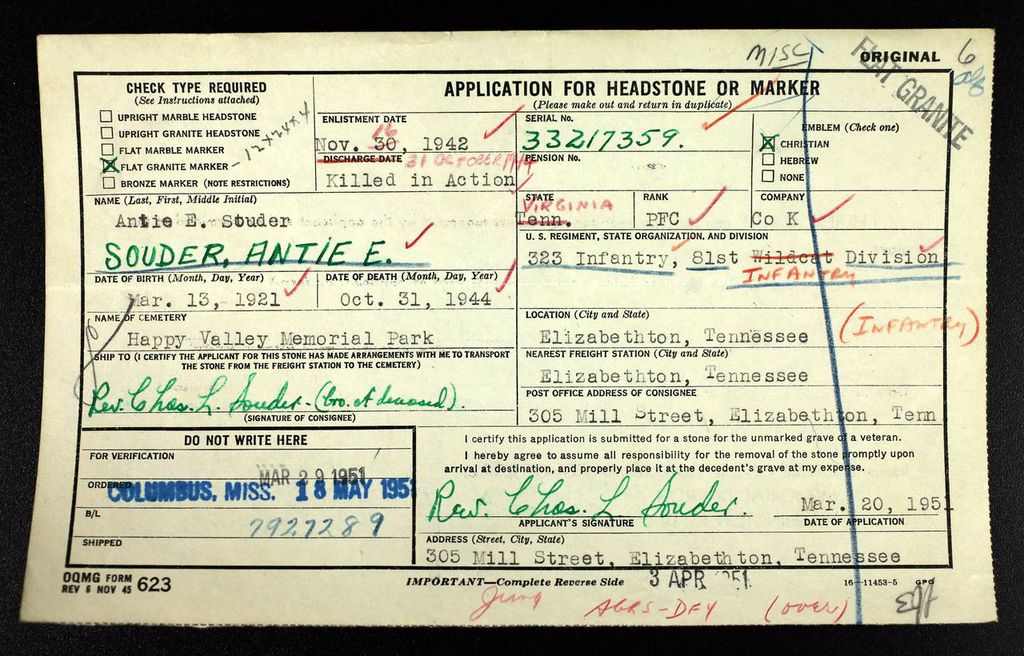 MISC
ORIGINAL
6
FLAT GRANITE
CHECK TYPE REQUIRED
(See Instructions attached)
UPRIGHT MARBLE HEADSTONE
UPRIGHT GRANITE HEADSTONE
FLAT MARBLE MARKER
FLAT GRANITE MARKER - 12x24x4
BRONZE MARKER (NOTE RESTRICTIONS)
APPLICATION FOR HEADSTONE OR MARKER
(Please make out and return in duplicate)
ENLISTMENT DATE
16
Nov. 30, 1942
DISCHARGE DATE 31 OCTOBER 1944
Killed in Action
SERIAL No.
33217359.
PENSION No.
EMBLEM (Check one)
CHRISTIAN
HEBREW
NONE
NAME (Last, First, Middle Initial)
Antie E. Souder
SOUDER, ANTIE E.
STATE
VIRGINIA
Tenn.
RANK
PFC
COMPANY
Co K
U. S. REGIMENT, STATE ORGANIZATION, AND DIVISION
323 Infantry, 81st Wildcat Division
INFANTRY
DATE OF BIRTH (Month, Day, Year)
Mar. 13, 1921
DATE OF DEATH (Month, Day, Year)
Oct. 31, 1944
NAME OF CEMETERY
Happy Valley Memorial Park
LOCATION (City and State)
Elizabethton, Tennessee
(INFANTRY)
SHIP TO (I CERTIFY THE APPLICANT FOR THIS STONE HAS MADE ARRANGEMENTS WITH ME TO TRANSPORT
THE STONE FROM THE FREIGHT STATION TO THE CEMETERY)
Rev. Chas. L. Souder. (bro. of deceased).
(SIGNATURE OF CONSIGNEE)
NEAREST FREIGHT STATION (City and State)
Elizabethton, Tennessee
POST OFFICE ADDRESS OF CONSIGNEE
305 Mill Street, Elizabethton, Tenn
DO NOT WRITE HERE
FOR VERIFICATION
MAR 29 1951
ORDERED
COLUMBUS, MISS. 18 MAY 195
B/L
7927289
SHIPPED
I certify this application is submitted for a stone for the unmarked grave of a veteran.
I hereby agree to assume all responsibility for the removal of the stone promptly upon
arrival at destination, and properly place it at the decedent's grave at my expense.
Rev. Chas. L Souder.
Mar. 20, 1951
APPLICANT'S SIGNATURE
DATE OF APPLICATION
ADDRESS (Street, City, State)
305 Mill Street, Elizabethton, Tennessee
OQMG FORM
REV 6 NOV 45 623
IMPORTANT—Complete Reverse Side
3 APR 51
16—11453-5 GPO
AGRS-DFY (over)